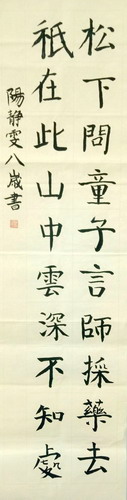 松下問童子言師採藥去
祇在此山中雲深不知處
陽靜雯八歲書